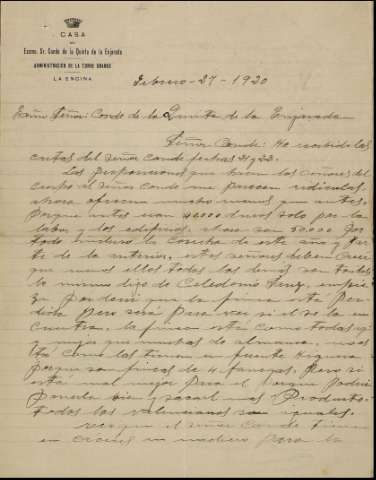 CASA
DEL
Excmo. Sr. Conde de la Quinta de la Enjarada
ADMINISTRACION DE LA TORRE GRANDE
LA ENCINA
Febrero - 27 - 1920
Señor Conde de la Quinta de la Enjarada
Señor Conde: He recibido las
cartas del señor Conde fechas 21 y 23.
Las proporciones que hacen los señores del
al señor Conde me parecen ridiculas
ahora ofrecen mucho menos que antes.
Porque antes eran 40000 duros solo por la
labor y los edificios. ahora son 50000 por
todo incluso la Cosecha de este año y parte
de la anterior, estos señores deben creer
que menos ellos todos los demás son tontos
lo mismo digo de Celedonio
por decir que la finca esta per-
dida pero será para ver si el se la en-
cuentra. la finca esta como todas y
y mejor que muchas de almansa. no es-
tá como las tienen en fuente Higuera
porque son fincas de 4 fanegas. Pero si
está mal mejor para el porque podrá
ponerla bien y sacarle mas Producto.
todos los valencianos son iguales.
el señor Conde tiene
en un madero para la